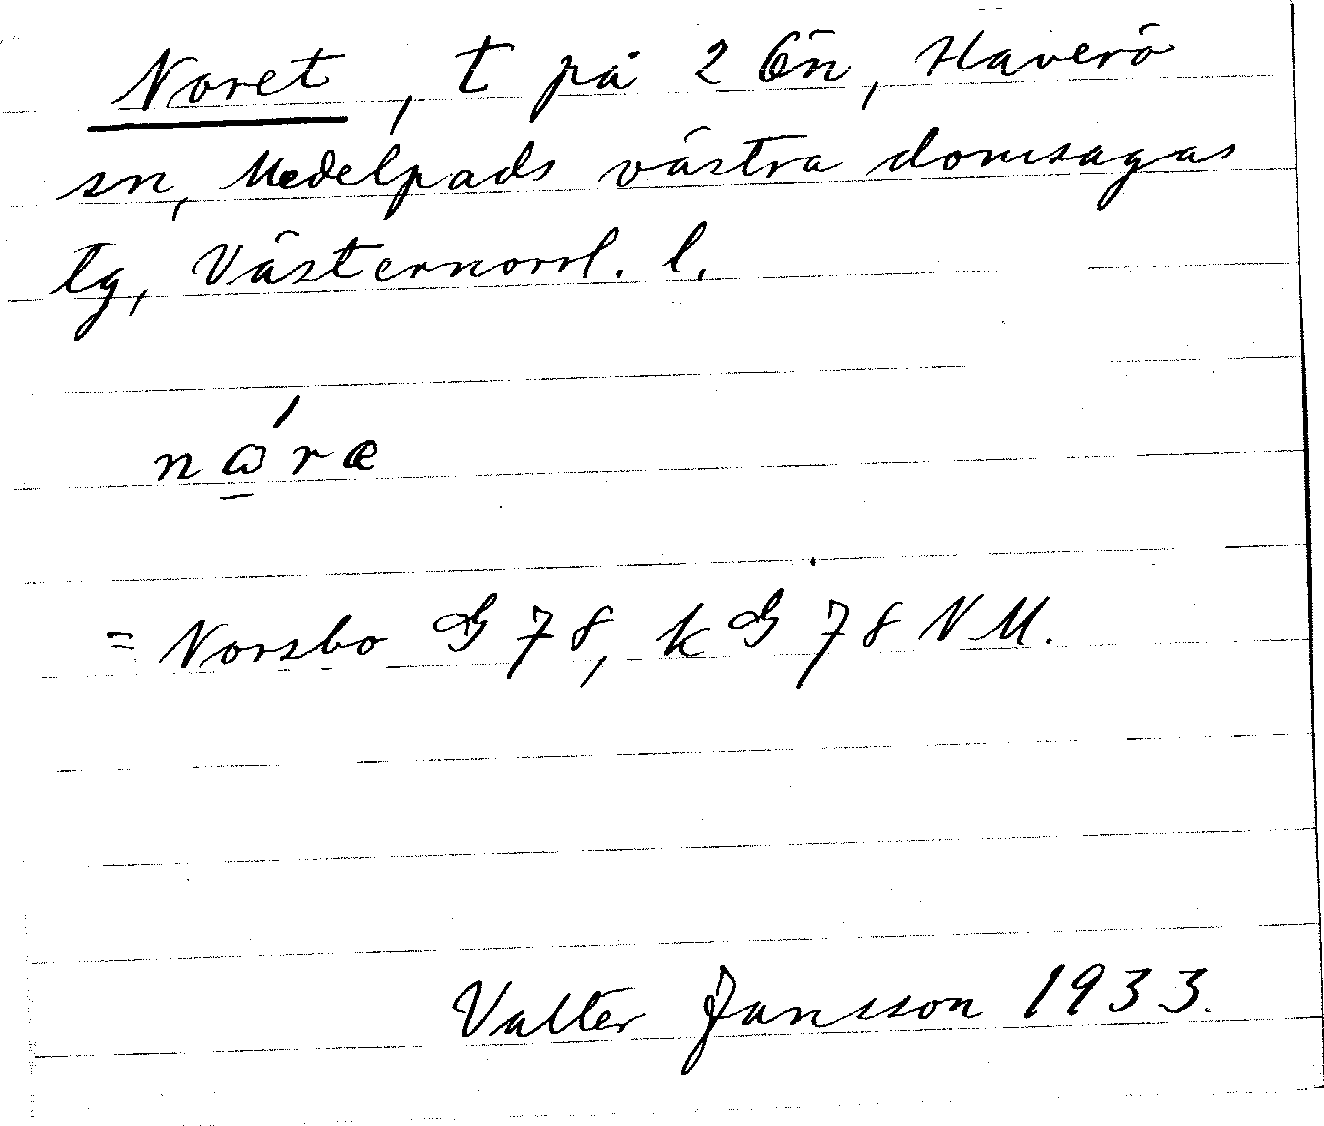 Noret, t på 2 Ön, Haverö
sn, Medelpads västra domsagas
tg, Västernorrl. l.
nǻræ
= Norsbo G 78, kG 78 NM.
Valter Jansson 1933.